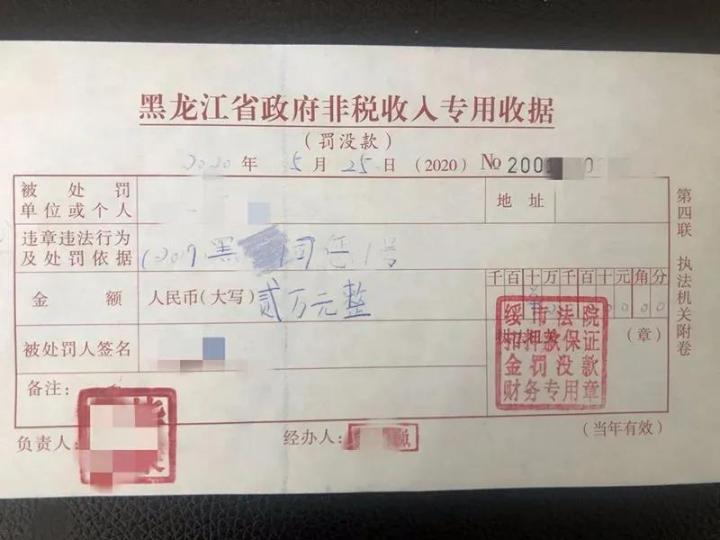 黑龙江省政府非税收入专用收据
(罚没款)
2020 年 5 月 25 日 (2020) № 200
被处罚
单位或个人
地 址
违章违法行为
及处罚依据
黑 司惩1号
千百十万千百十元角分
金 额
人民币(大写) 贰万元整
0 0 0
被处罚人签名
(章)
绥市法院
扣押款保证
金罚没款
财务专用章
备注:
负责人:
经办人:
(当年有效)
第四联 执法机关附卷